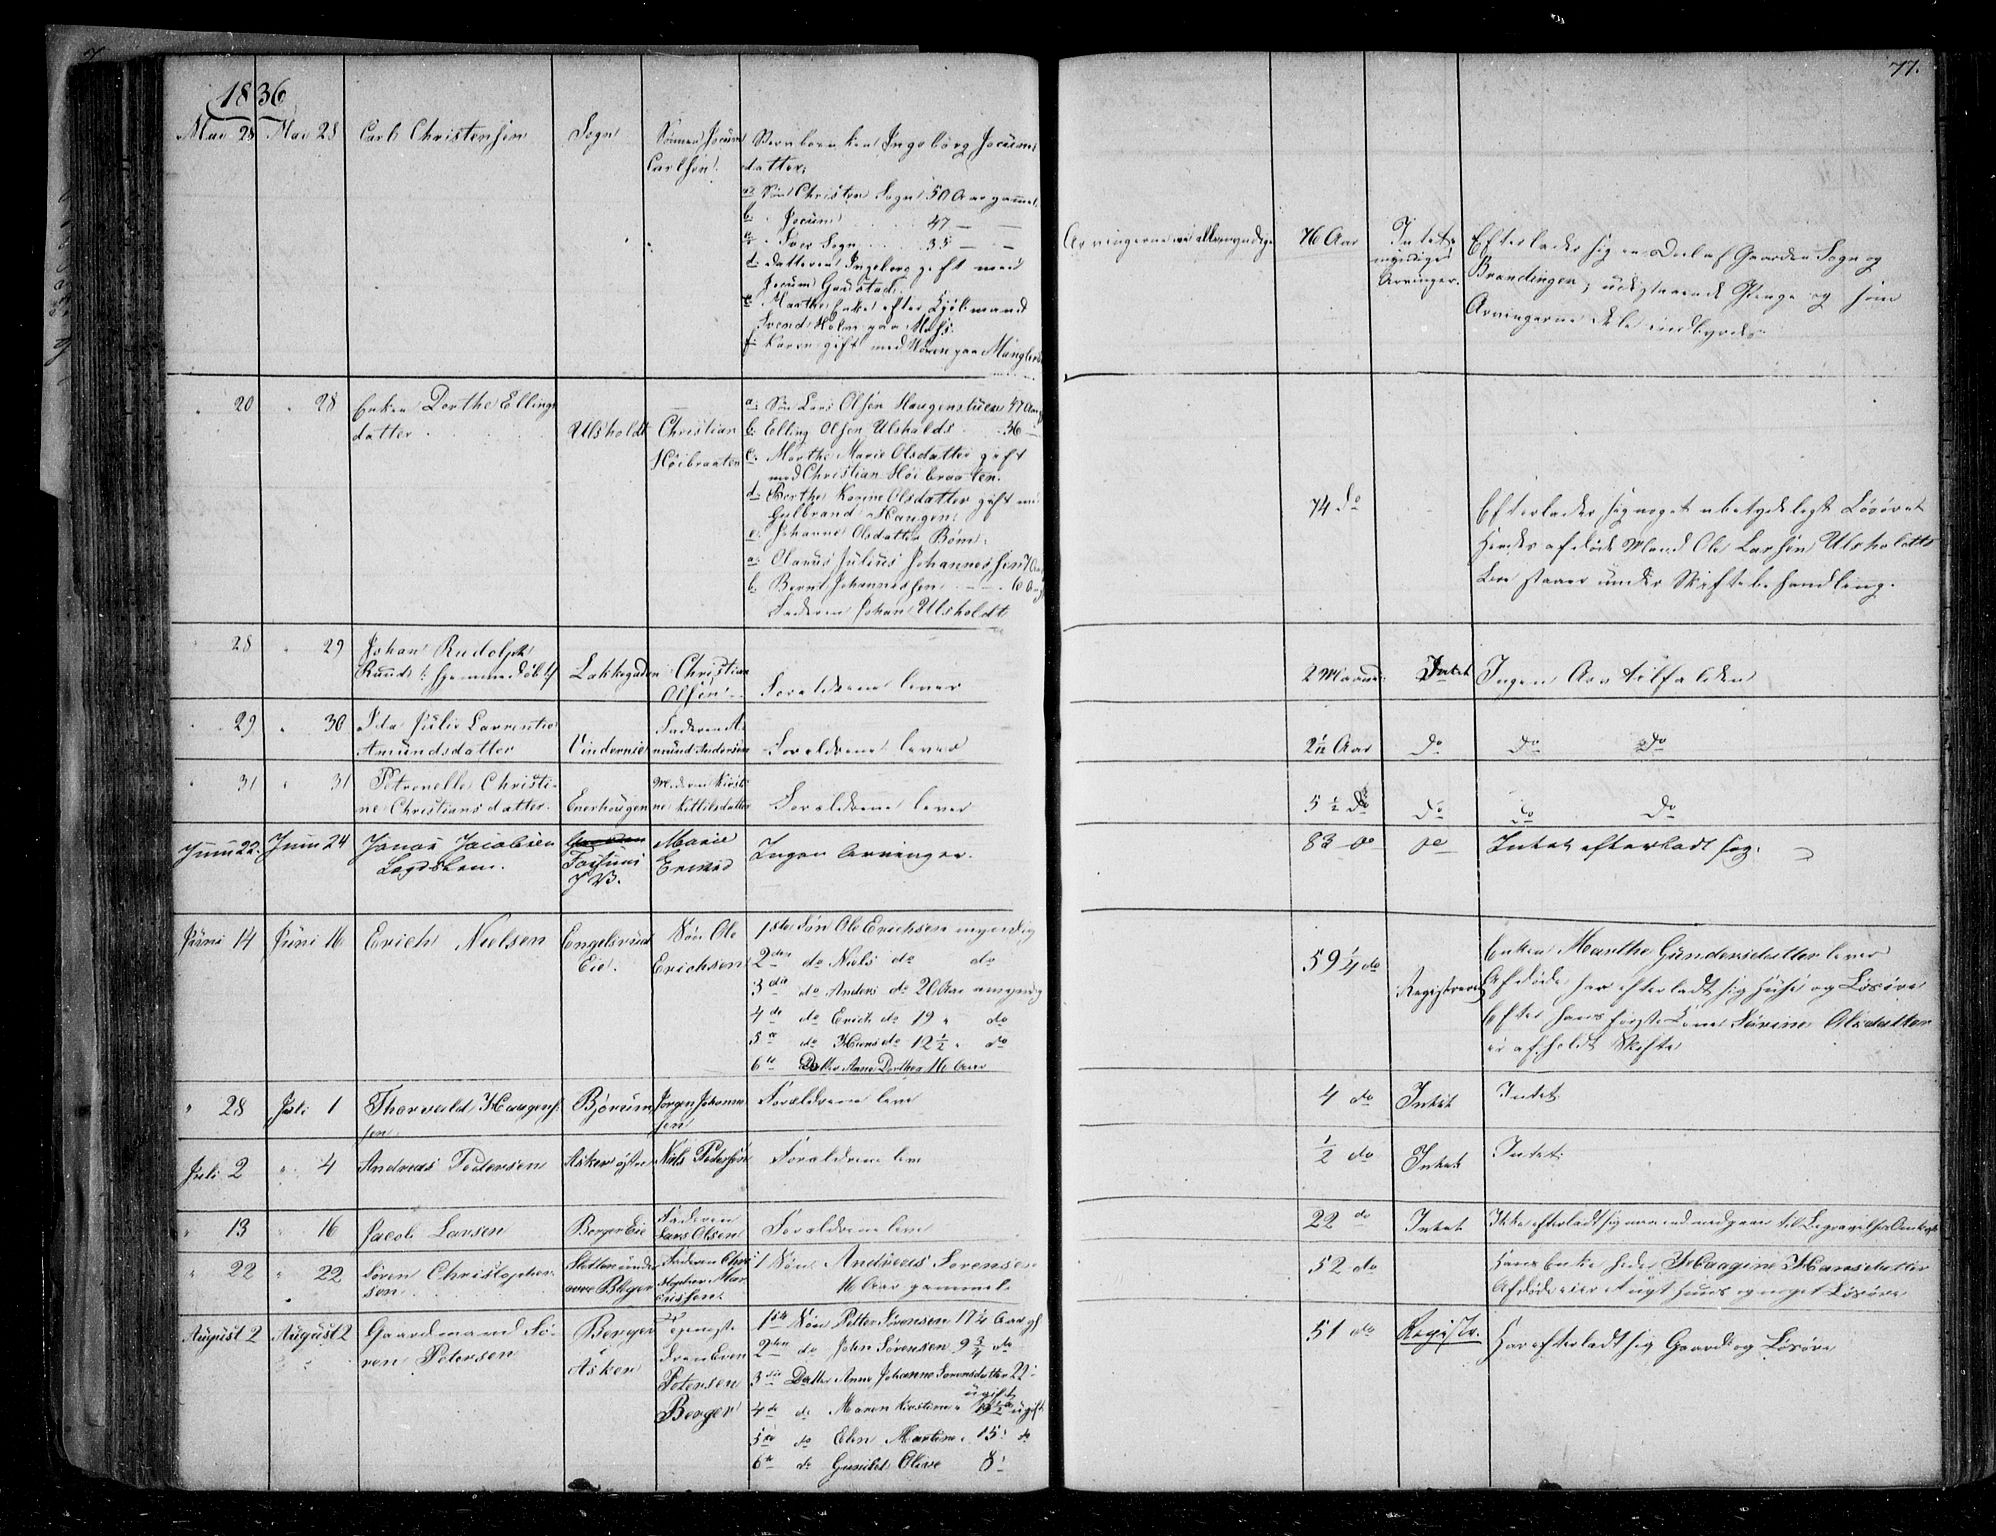 77.
1836
Mai 28 Mai 28 Carl Christensen Sogn Sønnen Jocum Carlsen
Børnbørn hen Ingeborg Jocums
datter;
a. Søn Christen Sogn 50 Aar gammel
b. Jocum 47 — —
c. Iver Sogn 35 — —
d. datteren Ingeborg gift med
Jocum Gaustad.
e. Marthe Enke efter
Svend Holm paa Moss
f. Karen gift med Søren paa Manglerud
Arvingerne ere alle myndige 76 Aar Intet myndige Arvinger.
Efterlader sig en Deel af Gaarden Sogn og
udestaaende Penge og som
Arvingerne dele indbyrdes
" 20 " 28 Enken Dorthe Ellings
datter Ulsholdt Christian
Høibraaten
a. Søn Lars Olsen Haugenstuen 47 Aar
b. Elling Olsen Ulsholdt 36 —
c. Marthe Marie Olsdatter gift
med Christian Høibraaten.
d. Berthe Karine Olsdatter gift med
Gulbrand Haugen.
e. Johanne Olsdatter Børn:
a. Olaves Julius Johannessen 7 Aar
b. Bernt Johannessen 6 Aar
Faderen Johan Ulsholdt
74 do
Efterlader sig noget ubetydeligt Løsøret
Hendes afdøde Mand Ole Larsen Ulsholdts
Boe staaer under Skiftebehandling.
" 28 " 29 Johan Rudolph
Ruud /: hjemmedøbt :/ Lakkegaden Christian
Olsen
Forældrene lever
2 Maaned Intet Ingen Arv tilfalden
" 29 " 30 Ida Julie Laurentie
Amundsdatter Vinderen Faderen A-
mund Andersen Forældrene lever
2½ Aar do do do
" 31 " 31 Petronelle Christi-
ne Christiansdatter Enerhougen Moderen Kirsti-
ne Kittilsdatter Forældrene lever
5½ do do do do
Juni 22. Juni 24 Jonas Jacobsen
Marie
Ingen Arvinger.
83 do do Intet efterladt sig.
Juni 14 Juni 16 Erich Nielsen Engelsrud
Eie. Søn Ole
Erichsen
1ste Søn Ole Erichsen myndig
2den do Niels do do
3die do Anders do 20 Aar umyndig
4de do Erich do 19 " do
5te do Hans do 12½ " do
6te Datter Anne Dorthea 16 Aar
59¼ do Registreret
Enken Marthe Gundersdatter lever
Afdøde har efterladt sig Huse og Løsøre
Efter hans første Kone Sørine Olsdatter
er afholdt Skifte
" 28 Juli 1 Thorvald Haagen-
sen Bjørum Jørgen Johannes-
sen Forældrene leve
4 do Intet Intet
Juli 2 " 4 Andreas Pedersen Asker østre Niels Pedersen Forældrene leve
½ do Intet Intet
" 13 " 16 Jacob Larsen Berger Eie Faderen
Lars Olsen Forældrene leve
22 do Intet Ikke efterladt sig mere end medgaar til Begravelses Omkost.
" 22 " 22 Søren Christopher-
sen Sletten under
Faderen Chri-
stopher Mar-
cussen
1 Søn Andreas Sorensen
16 Aar gammel
52 do
Hans Enke heder Haagine Hansdatter
Afdøde eier Huus og noget Løsøre
August 2 August 2 Gaardmand Sø-
ren Petersen Berger
i
Asker
Svend Even
Petersen
Berger
1ste Søn Petter Sørensen 17¼ Aar gl
2den do John Sørensen 9¾ do
3die Datter Anne Johanne Sørensdatter 22
ugift
4de do Maren Kirstine 19½ ugift
5te do Elen Martine 15 do
6te do Gunild Olive 8
51 do Registr. Har efterladt sig Gaard og Løsøre